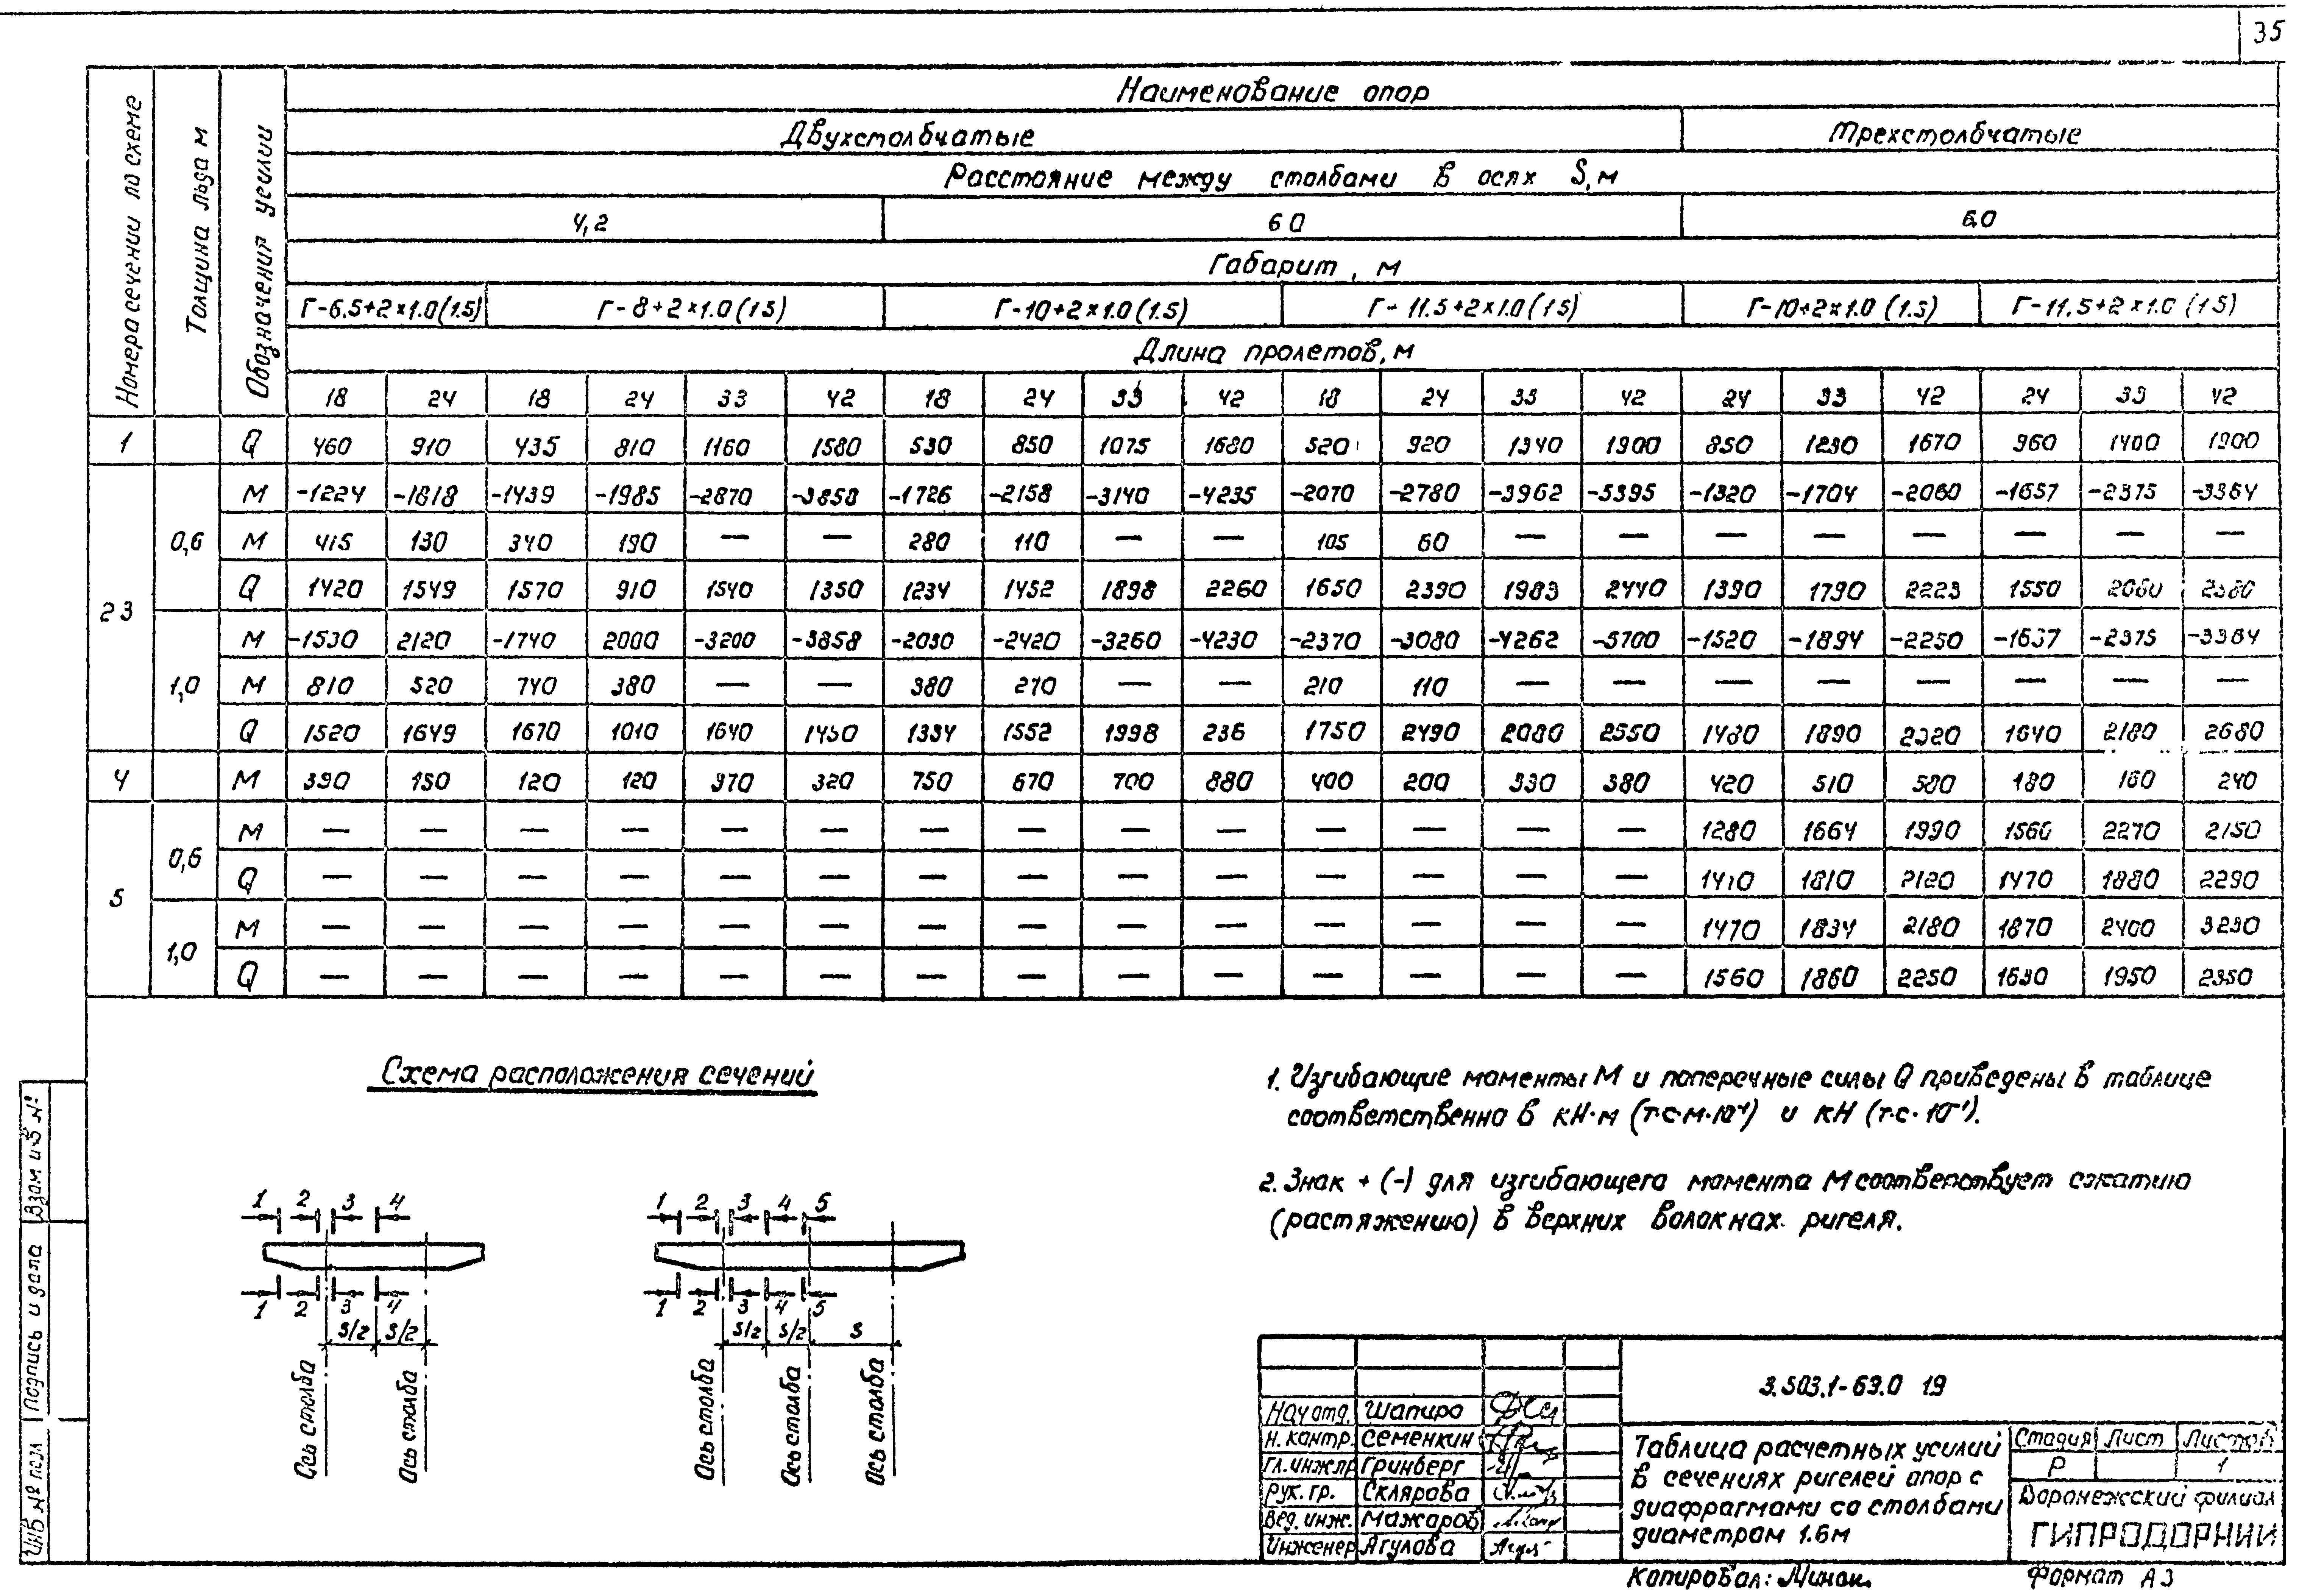 35
Наименование опор
Двухстолбчатые Трехстолбчатые
Расстояние между столбами в осях S, м
4,2 6 0 6,0
Габарит, м
Г-6.5+2×1.0(1.5) Г-8+2×1.0(1 5) Г-10+2×1.0(1.5) Г-11.5+2×1.0(1 5) Г-10+2×1.0 (1.5) Г-11.5+2×1.0 (1 5)
Длина пролетов, м
Номера сечении по схеме
Толщина льда м
Обозначения усилии
18 24 18 24 33 42 18 24 33 42 18 24 33 42 24 33 42 24 33 42
1 Q 460 910 435 810 1160 1580 530 850 1075 1680 520 920 1340 1900 850 1230 1670 960 1400 1900
М -1224 -1818 -1439 -1985 -2870 -3858 -1726 -2158 -3140 -4235 -2070 -2780 -3962 -5395 -1320 -1704 -2060 -1657 -2375 -3364
0,6 М 415 130 340 190 — — 280 110 — — 105 60 — — — — — — — —
Q 1420 1549 1570 910 1540 1350 1234 1452 1898 2260 1650 2390 1983 2440 1390 1790 2223 1550 2080 2580
2 3
М -1530 2120 -1740 2000 -3200 -3858 -2030 -2420 -3260 -4230 -2370 -3080 -4262 -5700 -1520 -1894 -2250 -1637 -2375 -3364
1,0 М 810 520 740 380 — — 380 270 — — 210 110 — — — — — — — —
Q 1520 1649 1670 1010 1640 1450 1334 1552 1998 236 1750 2490 2080 2550 1480 1890 2320 1640 2180 2680
4 М 390 150 120 120 370 320 750 670 700 880 400 200 330 380 420 510 580 180 160 240
М — — — — — — — — — — — — — — 1280 1664 1990 1560 2270 2150
0,6
Q — — — — — — — — — — — — — — 1410 1810 2120 1470 1880 2290
5
М — — — — — — — — — — — — — — 1470 1834 2180 1870 2400 3230
1,0
Q — — — — — — — — — — — — — — 1560 1860 2250 1630 1950 2350
Схема расположения сечений
1 2 3 4
1 2 3 4
S/2 S/2
Ось столба
Ось столба
1 2 3 4 5
1 2 3 4 5
S/2 S/2 S
Ось столба
Ось столба
Ось столба
1. Изгибающие моменты М и поперечные силы Q приведены в таблице
соответственно в кН·м (т·с·м·10⁻¹) и кН (т·с·10⁻¹).
2. Знак + (-) для изгибающего момента М соответствует сжатию
(растяжению) в верхних волокнах ригеля.
Взам инв №
Подпись и дата
Инв № подл
3.503.1-69.0 19
Нач отд. Шапиро
Н. контр. Семенкин
Гл. инж.пр Гринберг
Рук. гр. Склярова
Вед. инж. Мажаров
Инженер Ягулова
Таблица расчетных усилий
в сечениях ригелей опор с
диафрагмами со столбами
диаметром 1.6м
Стадия Лист Листов
Р 1
Воронежский филиал
ГИПРОДОРНИИ
Копировал:
Формат А3